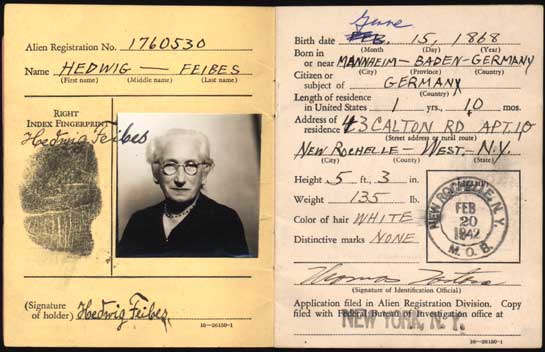 Alien Registration No. 1760530
Name HEDWIG — FEIBES
(First name) (Middle name) (Last name)
RIGHT
INDEX FINGERPRINT
Hedwig Feibes
(Signature
of holder) Hedwig Feibes
16—26150-1
June
Birth date FEB. 15, 1868
(Month (Day) (Year)
Born in
or near MANNHEIM — BADEN-GERMANY
(City) (Province) (Country)
Citizen or
subject of GERMANY
(Country)
Length of residence
in United States 1 yrs., 10 mos.
Address of
residence 43 CALTON RD. APT. 1P
(Street address or rural route)
NEW ROCHELLE — WEST. — N.Y.
(City) (County) (State)
Height 5 ft., 3 in.
Weight 135 lb.
Color of hair WHITE
Distinctive marks NONE
NEW ROCHELLE, N.Y.
FEB
20
1942
M.O.B.
Thomas
(Signature of Identification Official)
Application filed in Alien Registration Division. Copy
filed with Federal Bureau of Investigation office at
NEW YORK, N.Y.
16—26150-1